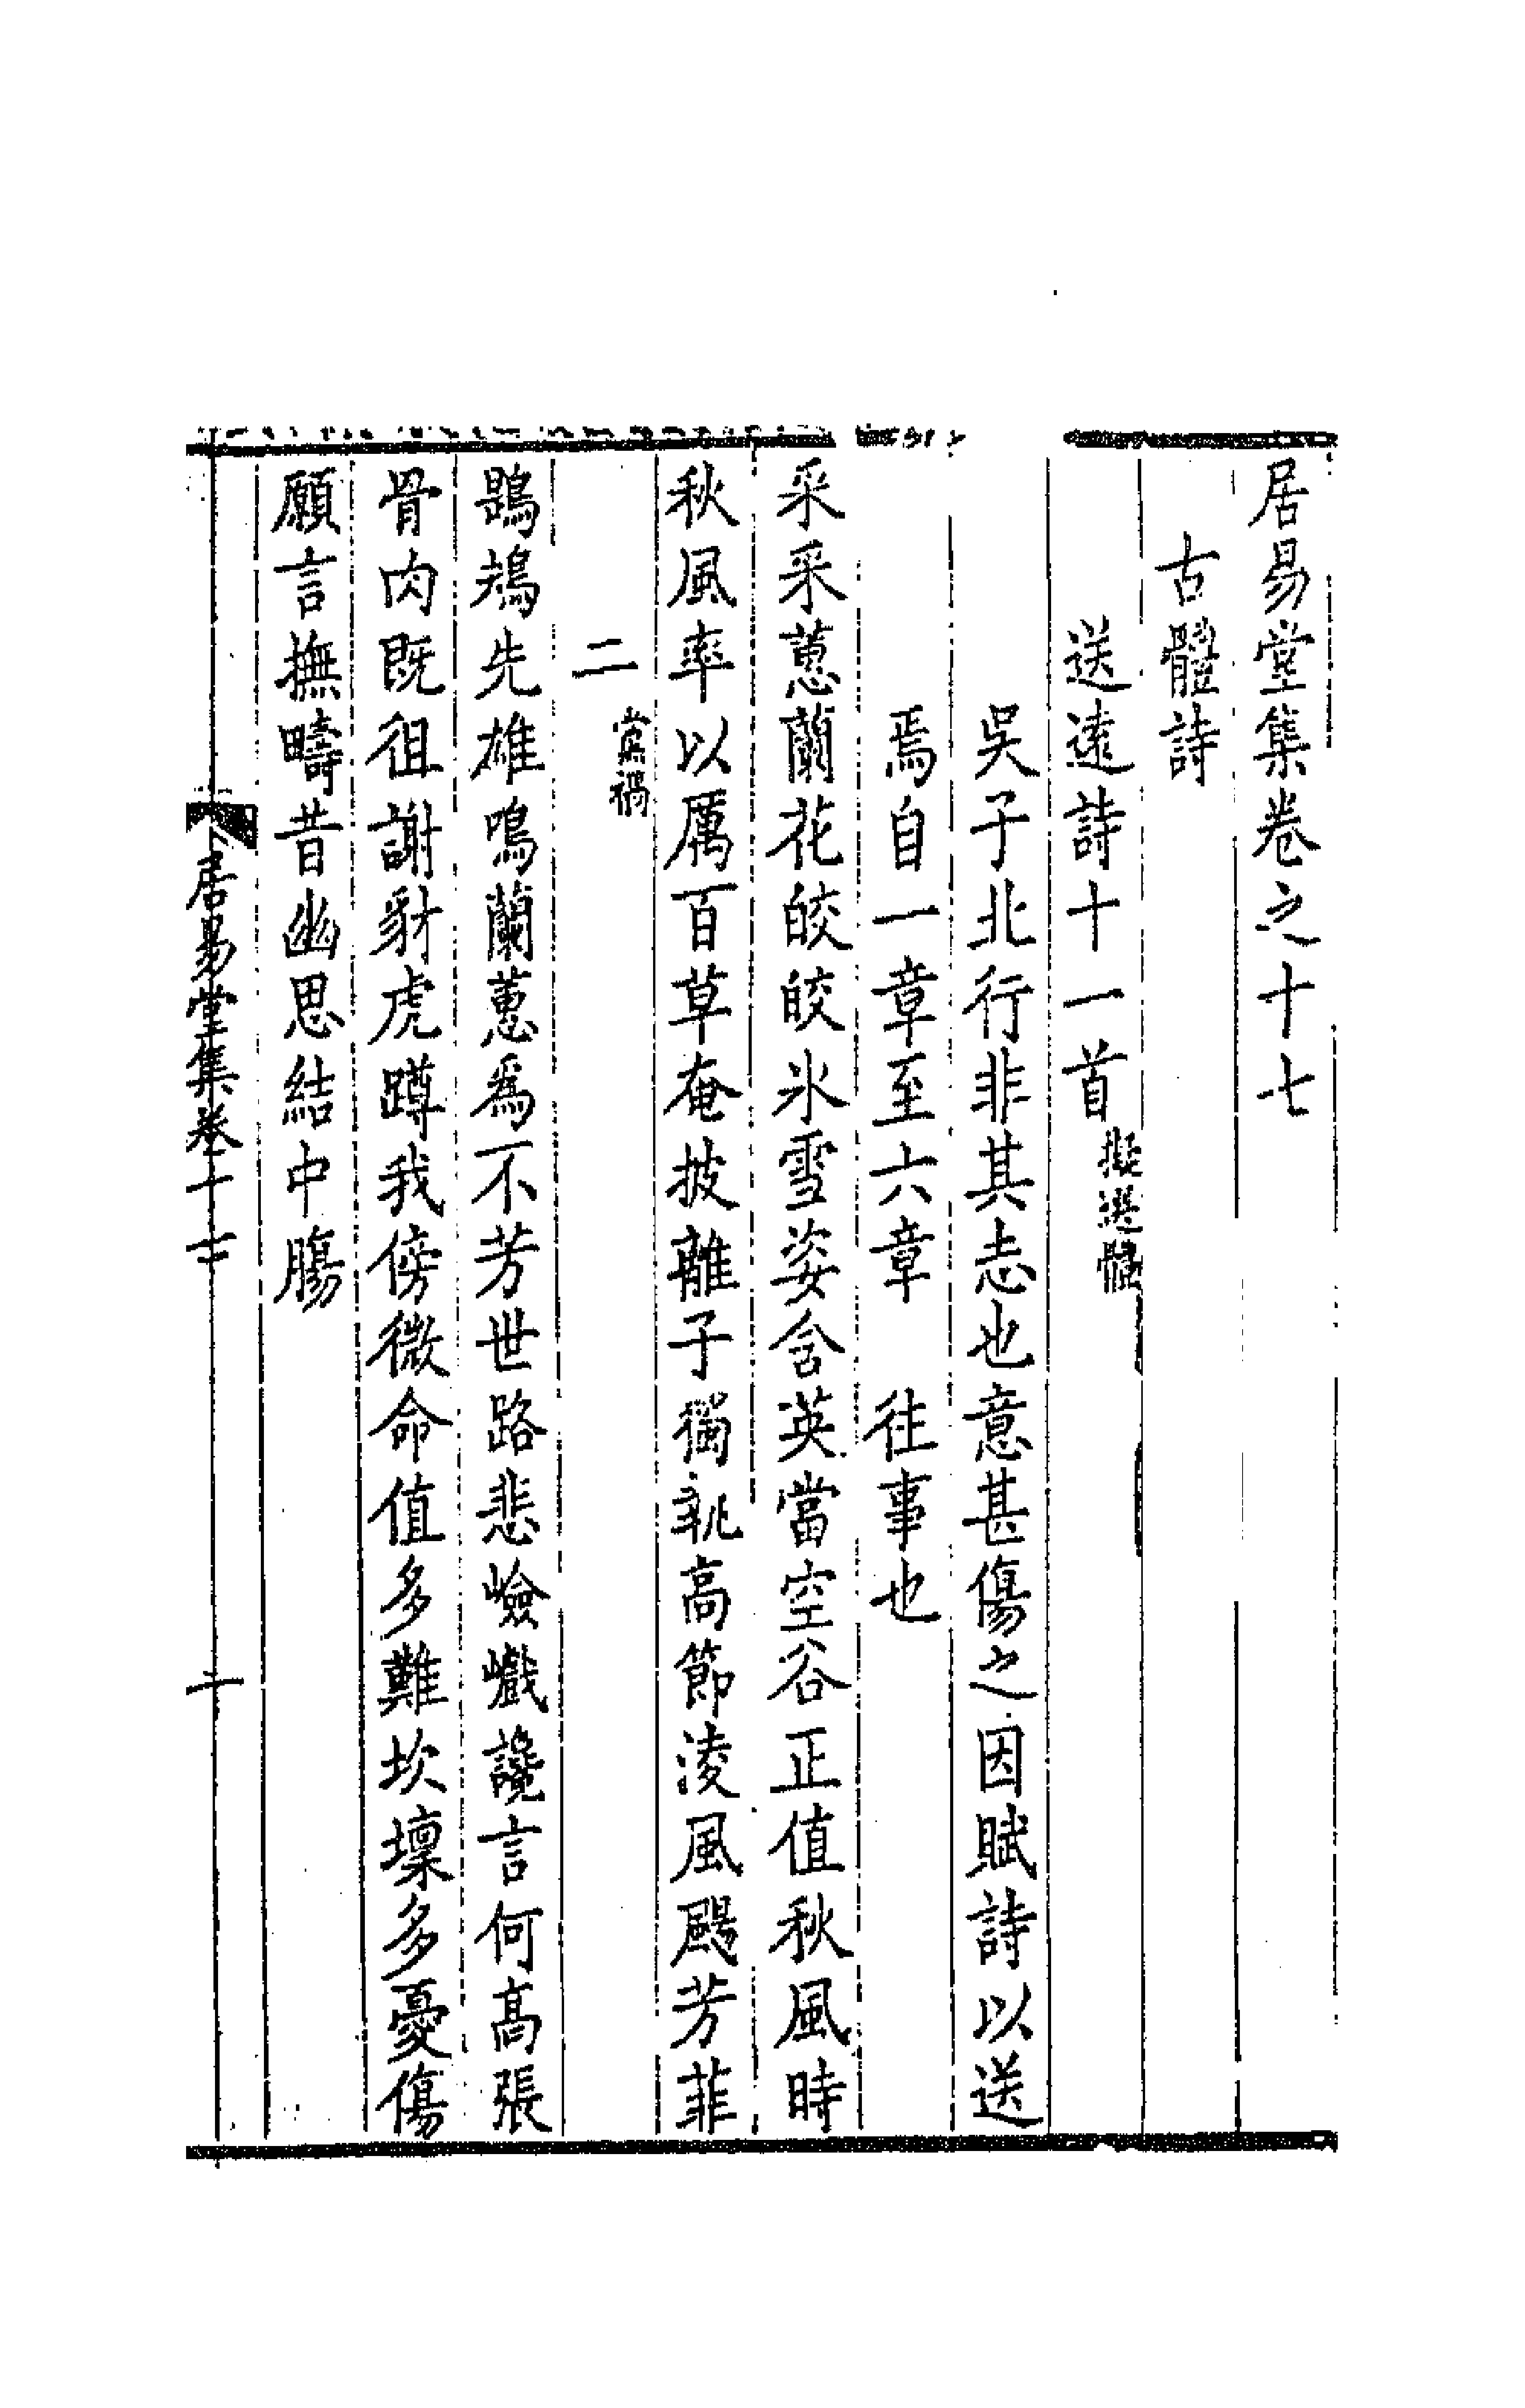 居易堂集卷之十七
古體詩
送遠詩十一首擬選體
吳子北行非其志也意甚傷之因賦詩以送
焉自一章至六章　往事也
采采蕙蘭花皎皎氷雪姿含英當空谷正值秋風時
秋風率以厲百草奄披離子獨執高節淩風颺芳菲
二黨禍
鶗鴂先雄鳴蘭蕙為不芳世路悲嶮巇讒言何髙張
骨肉既徂謝豺虎蹲我傍微命值多難坎壈多憂傷
願言撫疇昔幽思結中腸
居易堂集卷十七
一